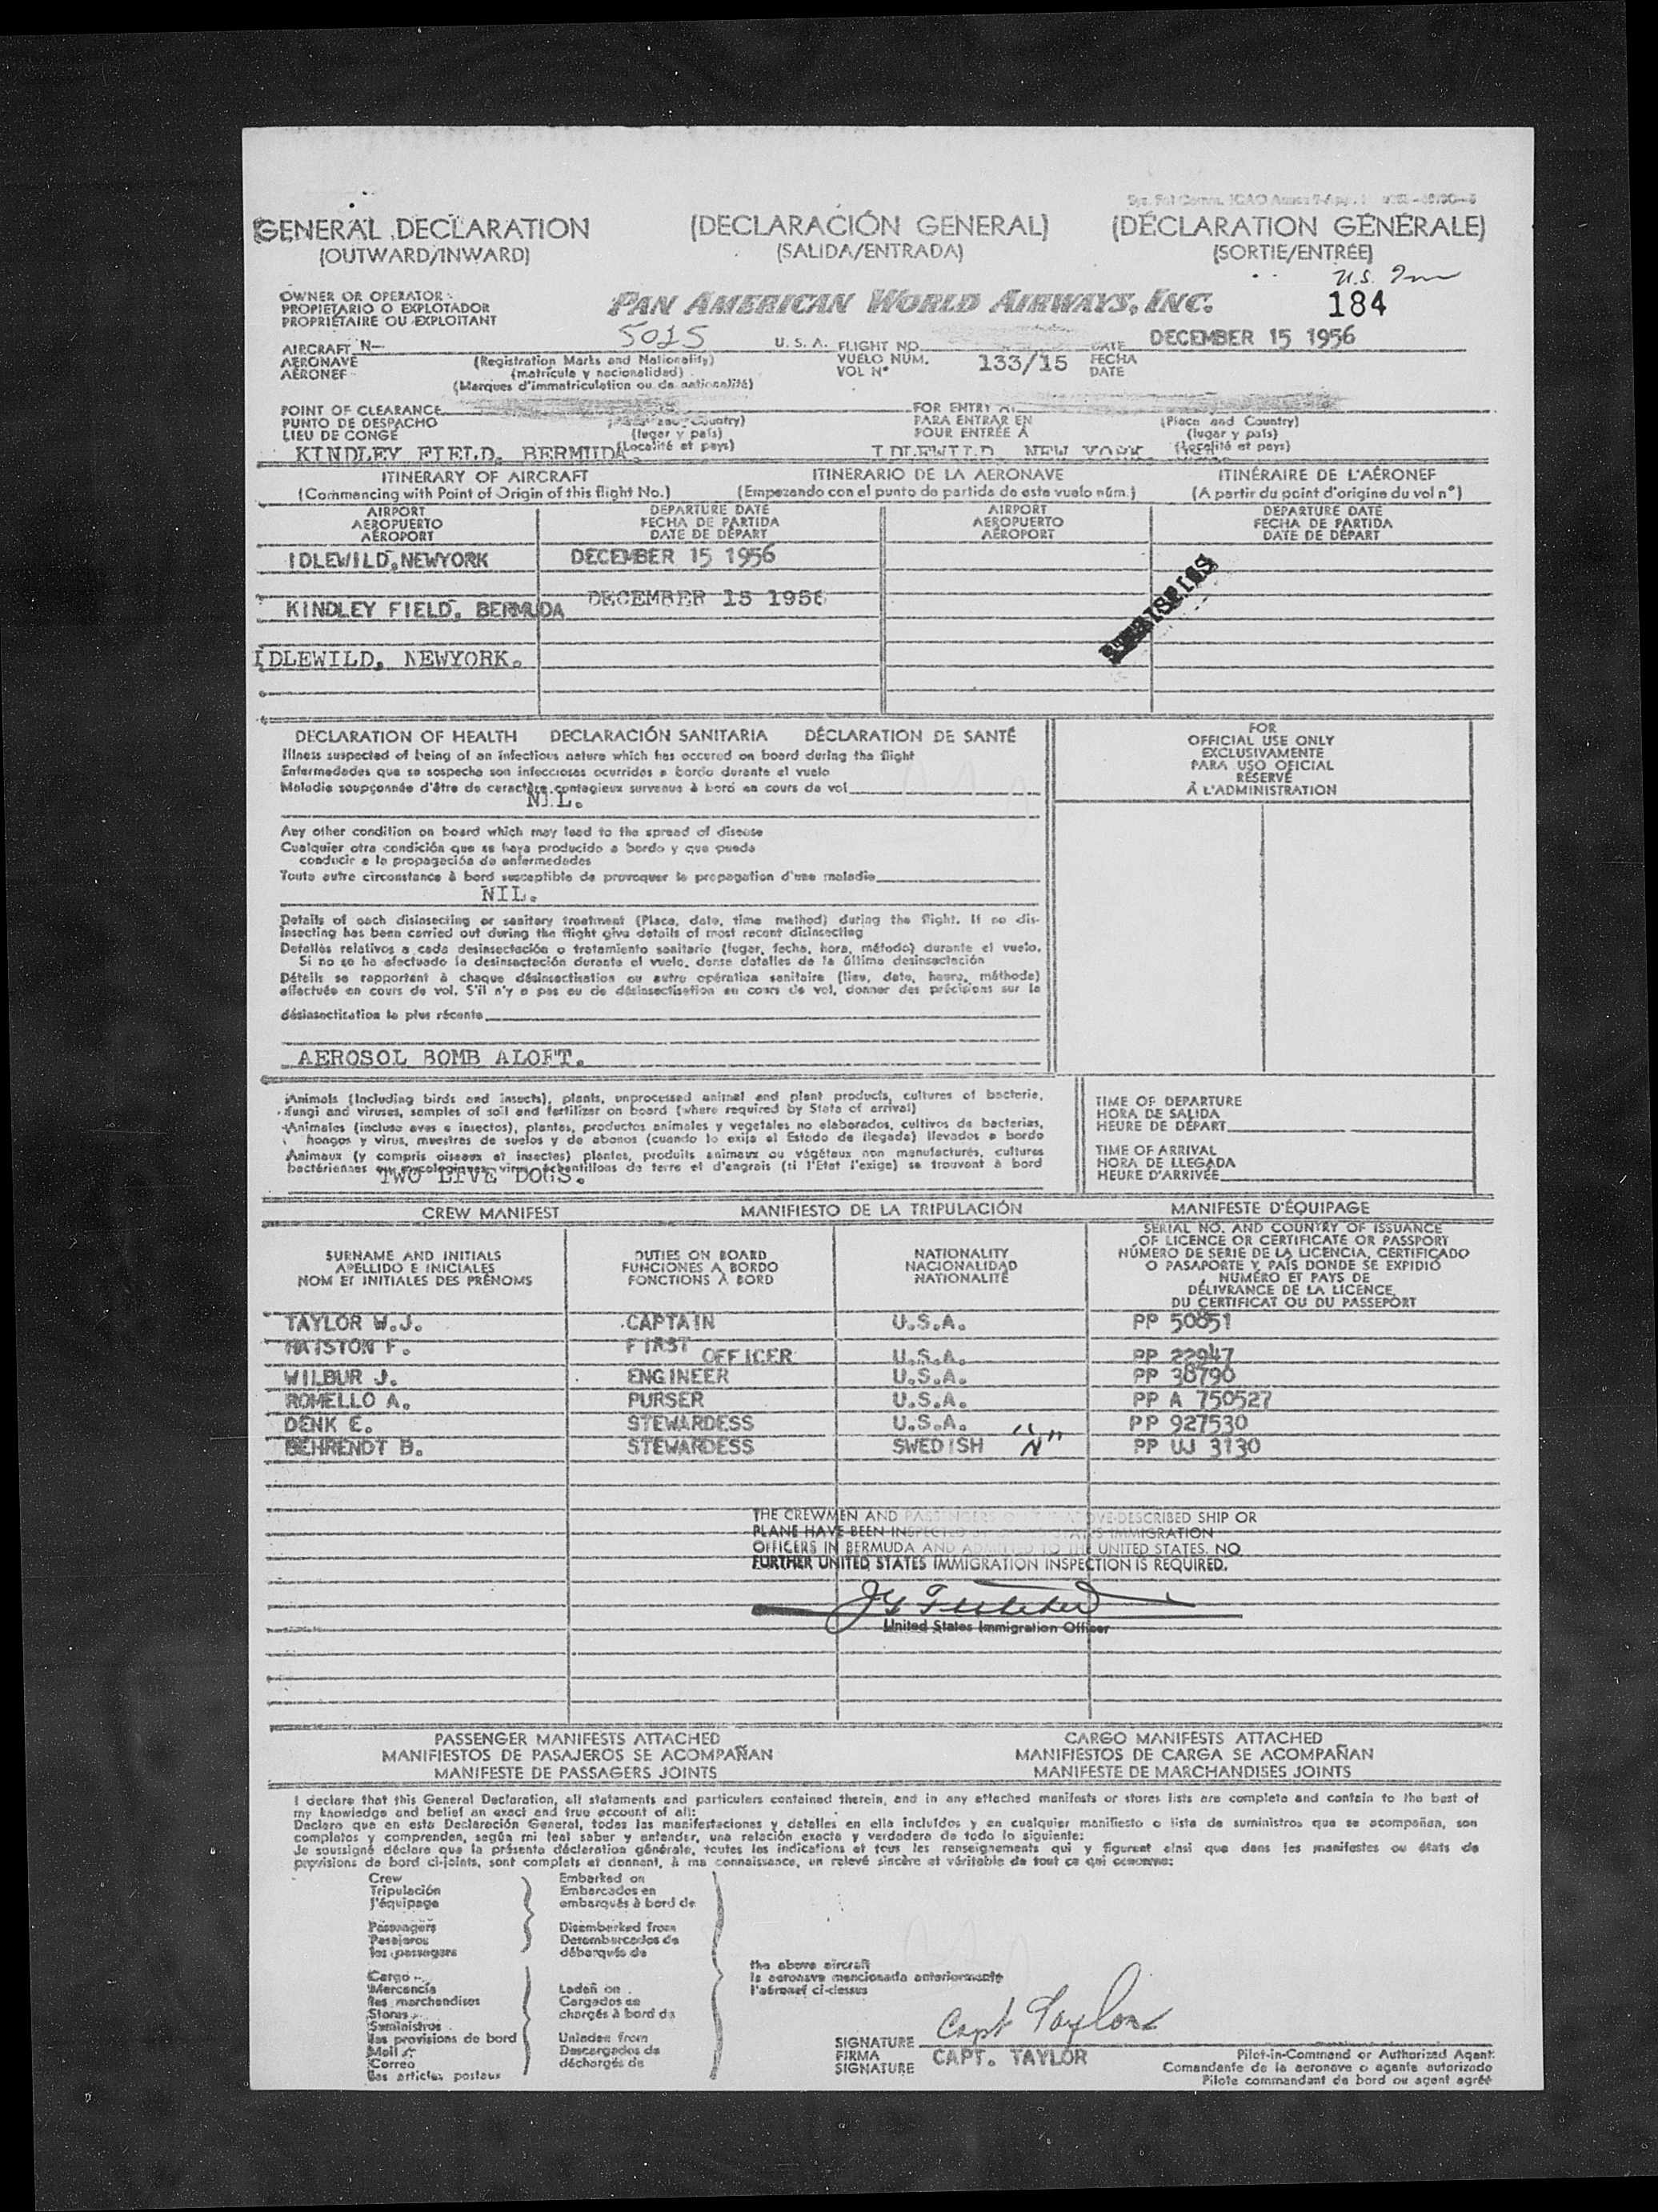 GENERAL DECLARATION (DECLARACIÓN GENERAL) (DÉCLARATION GÉNÉRALE)
(OUTWARD/INWARD) (SALIDA/ENTRADA) (SORTIE/ENTRÉE)
U.S.
184
OWNER OR OPERATOR
PROPIETARIO O EXPLOTADOR
PROPRIÉTAIRE OU EXPLOITANT
PAN AMERICAN WORLD AIRWAYS, INC.
AIRCRAFT N- 5025 U.S.A. FLIGHT NO. DATE DECEMBER 15 1956
AERONAVE (Registration Marks and Nationality) VUELO NÚM. 133/15 FECHA
AÉRONEF (matrícula y nacionalidad) VOL Nº DATE
(Marques d'immatriculation ou de nationalité)
POINT OF CLEARANCE FOR ENTRY AT
PUNTO DE DESPACHO (Place and Country) PARA ENTRAR EN (Place and Country)
LIEU DE CONGÉ (lugar y país) POUR ENTRÉE À (lugar y país)
KINDLEY FIELD, BERMUDA (Localité et pays) IDLEWILD, NEW YORK (Localité et pays)
ITINERARY OF AIRCRAFT ITINERARIO DE LA AERONAVE ITINÉRAIRE DE L'AÉRONEF
(Commencing with Point of Origin of this flight No.) (Empezando con el punto de partida de este vuelo núm.) (A partir du point d'origine du vol nº)
AIRPORT DEPARTURE DATE AIRPORT DEPARTURE DATE
AEROPUERTO FECHA DE PARTIDA AEROPUERTO FECHA DE PARTIDA
AÉROPORT DATE DE DÉPART AÉROPORT DATE DE DÉPART
IDLEWILD, NEWYORK DECEMBER 15 1956
KINDLEY FIELD, BERMUDA DECEMBER 15 1956
IDLEWILD, NEWYORK.
DECLARATION OF HEALTH DECLARACIÓN SANITARIA DÉCLARATION DE SANTÉ
Illness suspected of being of an infectious nature which has occured on board during the flight
Enfermedades que se sospecha son infecciosas ocurridas a bordo durante el vuelo
Maladie soupçonnée d'être de caractère contagieux survenue à bord en cours de vol
NIL.
FOR
OFFICIAL USE ONLY
EXCLUSIVAMENTE
PARA USO OFICIAL
RÉSERVÉ
À L'ADMINISTRATION
Any other condition on board which may lead to the spread of disease
Cualquier otra condición que se haya producido a bordo y que pueda
conducir a la propagación de enfermedades
Toute autre circonstance à bord susceptible de provoquer la propagation d'une maladie
NIL.
Details of each disinsecting or sanitary treatment (Place, date, time method) during the flight. If no dis-
insecting has been carried out during the flight give details of most recent disinsecting
Detalles relativos a cada desinsectación o tratamiento sanitario (lugar, fecha, hora, método) durante el vuelo.
Si no se ha efectuado la desinsectación durante el vuelo, dense detalles de la última desinsectación
Détails se rapportant à chaque désinsectisation ou autre opération sanitaire (lieu, date, heure, méthode)
effectuée en cours de vol. S'il n'y a pas eu de désinsectisation au cours de vol, donner des précisions sur la
désinsectisation la plus récente
AEROSOL BOMB ALOFT.
Animals (Including birds and insects), plants, unprocessed animal and plant products, cultures of bacteria,
fungi and viruses, samples of soil and fertilizer on board (where required by State of arrival)
Animales (incluso aves e insectos), plantas, productos animales y vegetales no elaborados, cultivos de bacterias,
hongos y virus, muestras de suelos y de abonos (cuando lo exija el Estado de llegada) llevados a bordo
Animaux (y compris oiseaux et insectes) plantes, produits animaux ou végétaux non manufacturés, cultures
bactériennes ou mycologiques, virus, échantillons de terre et d'engrais (si l'Etat l'exige) se trouvant à bord
TWO LIVE DOGS.
TIME OF DEPARTURE
HORA DE SALIDA
HEURE DE DÉPART
TIME OF ARRIVAL
HORA DE LLEGADA
HEURE D'ARRIVÉE
CREW MANIFEST MANIFIESTO DE LA TRIPULACIÓN MANIFESTE D'ÉQUIPAGE
SURNAME AND INITIALS
APELLIDO E INICIALES
NOM ET INITIALES DES PRÉNOMS
DUTIES ON BOARD
FUNCIONES A BORDO
FONCTIONS À BORD
NATIONALITY
NACIONALIDAD
NATIONALITÉ
SERIAL NO. AND COUNTRY OF ISSUANCE
OF LICENCE OR CERTIFICATE OR PASSPORT
NÚMERO DE SERIE DE LA LICENCIA, CERTIFICADO
O PASAPORTE Y PAÍS DONDE SE EXPIDIÓ
NUMÉRO ET PAYS DE
DÉLIVRANCE DE LA LICENCE,
DU CERTIFICAT OU DU PASSEPORT
TAYLOR W.J. CAPTAIN U.S.A. PP 50851
HAISTON F. FIRST OFFICER U.S.A. PP 22947
WILBUR J. ENGINEER U.S.A. PP 38790
ROMELLO A. PURSER U.S.A. PP A 750527
DENK E. STEWARDESS U.S.A. PP 927530
BEHRENDT B. STEWARDESS SWEDISH "N" PP UJ 3130
THE CREWMEN AND PASSENGERS OF THE ABOVE-DESCRIBED SHIP OR
PLANE HAVE BEEN INSPECTED BY UNITED STATES IMMIGRATION
OFFICERS IN BERMUDA AND ADMITTED TO THE UNITED STATES. NO
FURTHER UNITED STATES IMMIGRATION INSPECTION IS REQUIRED.
United States Immigration Officer
PASSENGER MANIFESTS ATTACHED CARGO MANIFESTS ATTACHED
MANIFIESTOS DE PASAJEROS SE ACOMPAÑAN MANIFIESTOS DE CARGA SE ACOMPAÑAN
MANIFESTE DE PASSAGERS JOINTS MANIFESTE DE MARCHANDISES JOINTS
I declare that this General Declaration, all statements and particulars contained therein, and in any attached manifests or stores lists are complete and contain to the best of
my knowledge and belief an exact and true account of all:
Declaro que en esta Declaración General, todas las manifestaciones y detalles en ella incluídos y en cualquier manifiesto o lista de suministros que se acompañan, son
completos y comprenden, según mi leal saber y entender, una relación exacta y verdadera de todo lo siguiente:
Je soussigné déclare que la présente déclaration générale, toutes les indications et tous les renseignements qui y figurent ainsi que dans les manifestes ou états de
provisions de bord ci-joints, sont complets et donnent, à ma connaissance, un relevé sincère et véritable de tout ce qui concerne:
Crew Embarked on
Tripulación Embarcados en
l'équipage embarqués à bord de
Passengers Disembarked from
Pasajeros Desembarcados de
les passagers débarqués de
the above aircraft
la aeronave mencionada anteriormente
l'aéronef ci-dessus
Cargo
Mercancía Laden on
les marchandises Cargados en
Stores chargés à bord de
Suministros
les provisions de bord Unladen from
Mail Descargados de
Correo déchargés de
les articles postaux
SIGNATURE Capt Taylor
FIRMA CAPT. TAYLOR
SIGNATURE
Pilot-in-Command or Authorized Agent
Comandante de la aeronave o agente autorizado
Pilote commandant de bord ou agent agréé